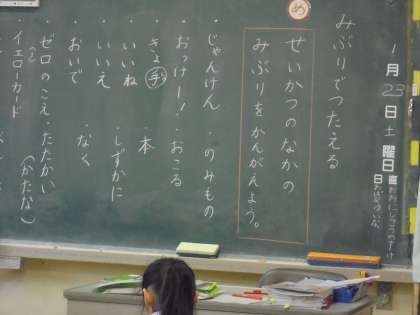 1月23日土曜日
日直
みぶりでつたえる
め
せいかつのなかの
みぶりをかんがえよう。
・じゃんけん ・のみもの
・おっけー! ・おこる
・きょ手 ・本
・いいね ・しずかに
・いいえ
・おいで ・なく
・ゼロのこえ ・たたかい
(かたな)
・イエローカード